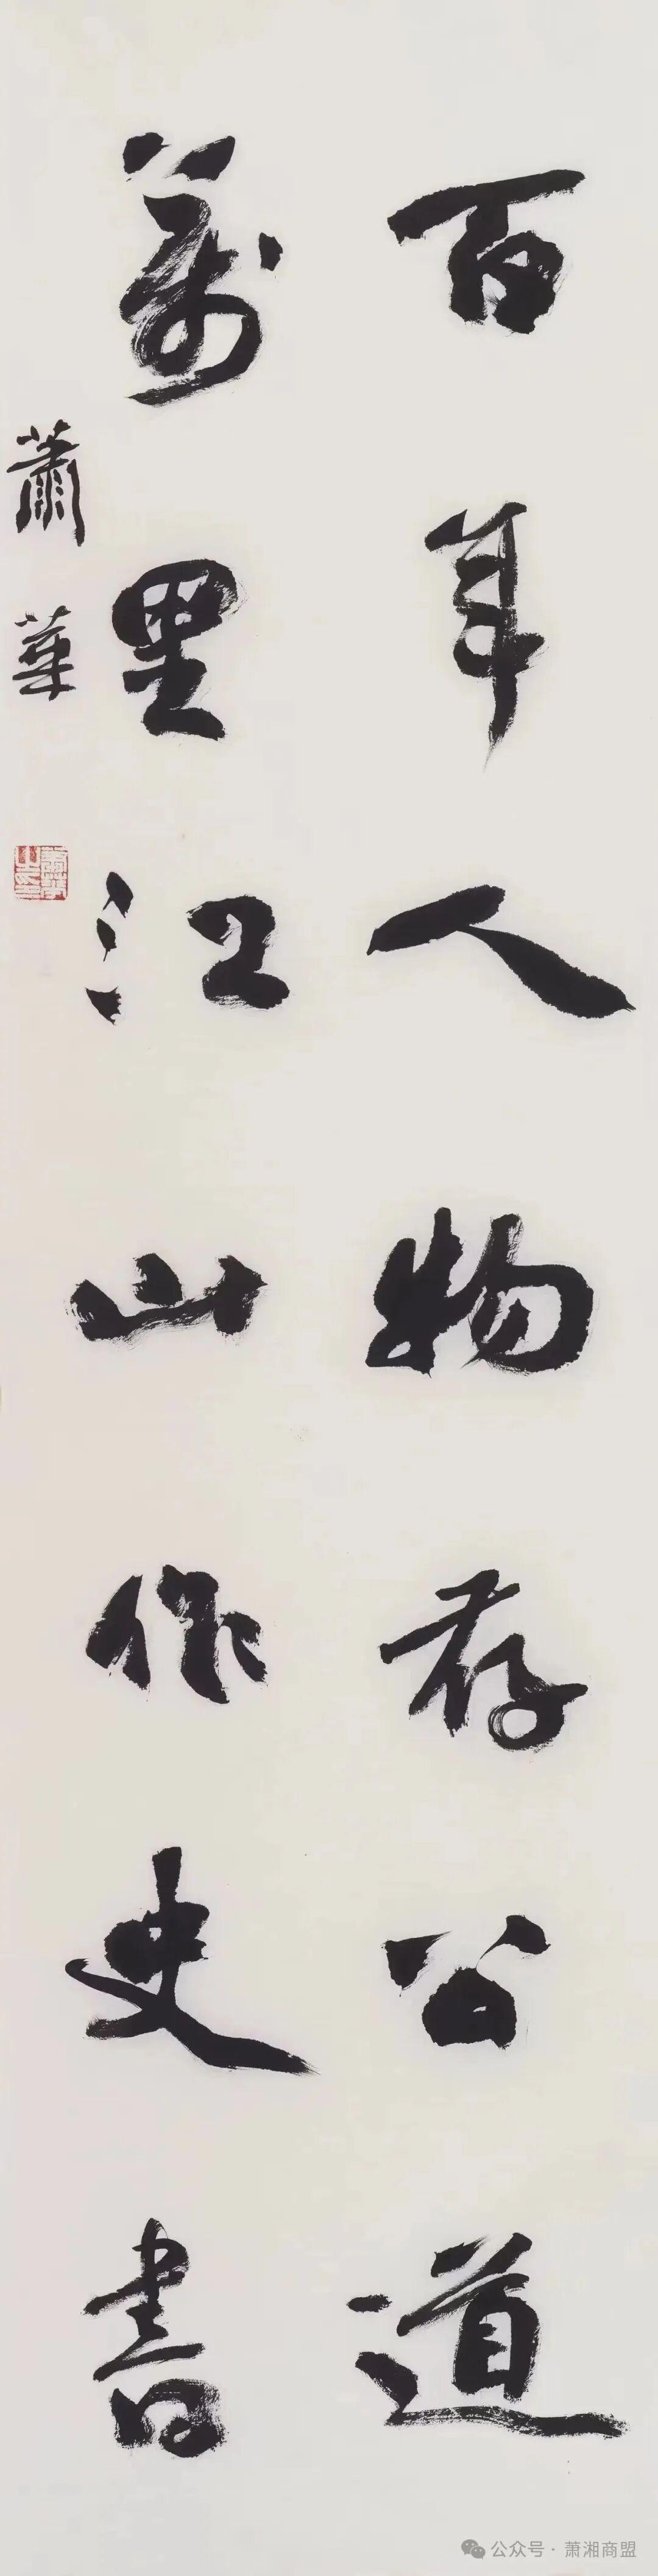 百年人物存公道
萬里江山作史書
蕭華
公众号·萧湘商盟